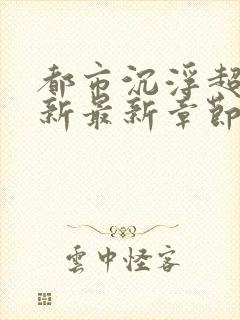 都市沉浮超
新最新章節
雲中怪客